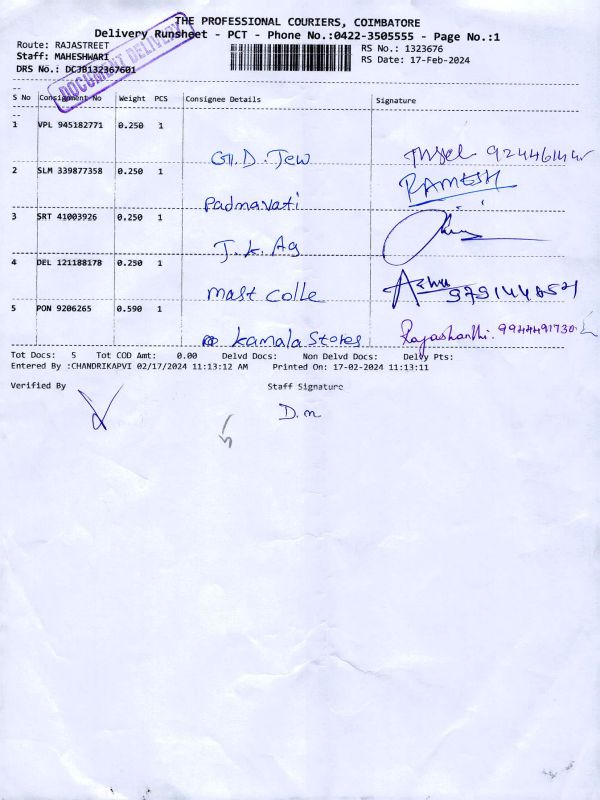 THE PROFESSIONAL COURIERS, COIMBATORE
Delivery Runsheet - PCT - Phone No.:0422-3505555 - Page No.:1
Route: RAJASTREET
RS No.: 1323676
Staff: MAHESHWARI
RS Date: 17-Feb-2024
DRS No.: DCJB132367601
DOCUMENT DELIVERY
S No Consignment No Weight PCS Consignee Details Signature
1 VPL 945182771 0.250 1
G.D. Jew
2 SLM 339877358 0.250 1 RAMESH
Padmavati
3 SRT 41003926 0.250 1
J.K. Ag
4 DEL 121188178 0.250 1
Mast Colle
5 PON 9206265 0.590 1
Kamala Stores Rajashanthi. 9944491730
Tot Docs: 5 Tot COD Amt: 0.00 Delvd Docs: Non Delvd Docs: Delvy Pts:
Entered By :CHANDRIKAPVI 02/17/2024 11:13:12 AM Printed On: 17-02-2024 11:13:11
Verified By Staff Signature
D.m